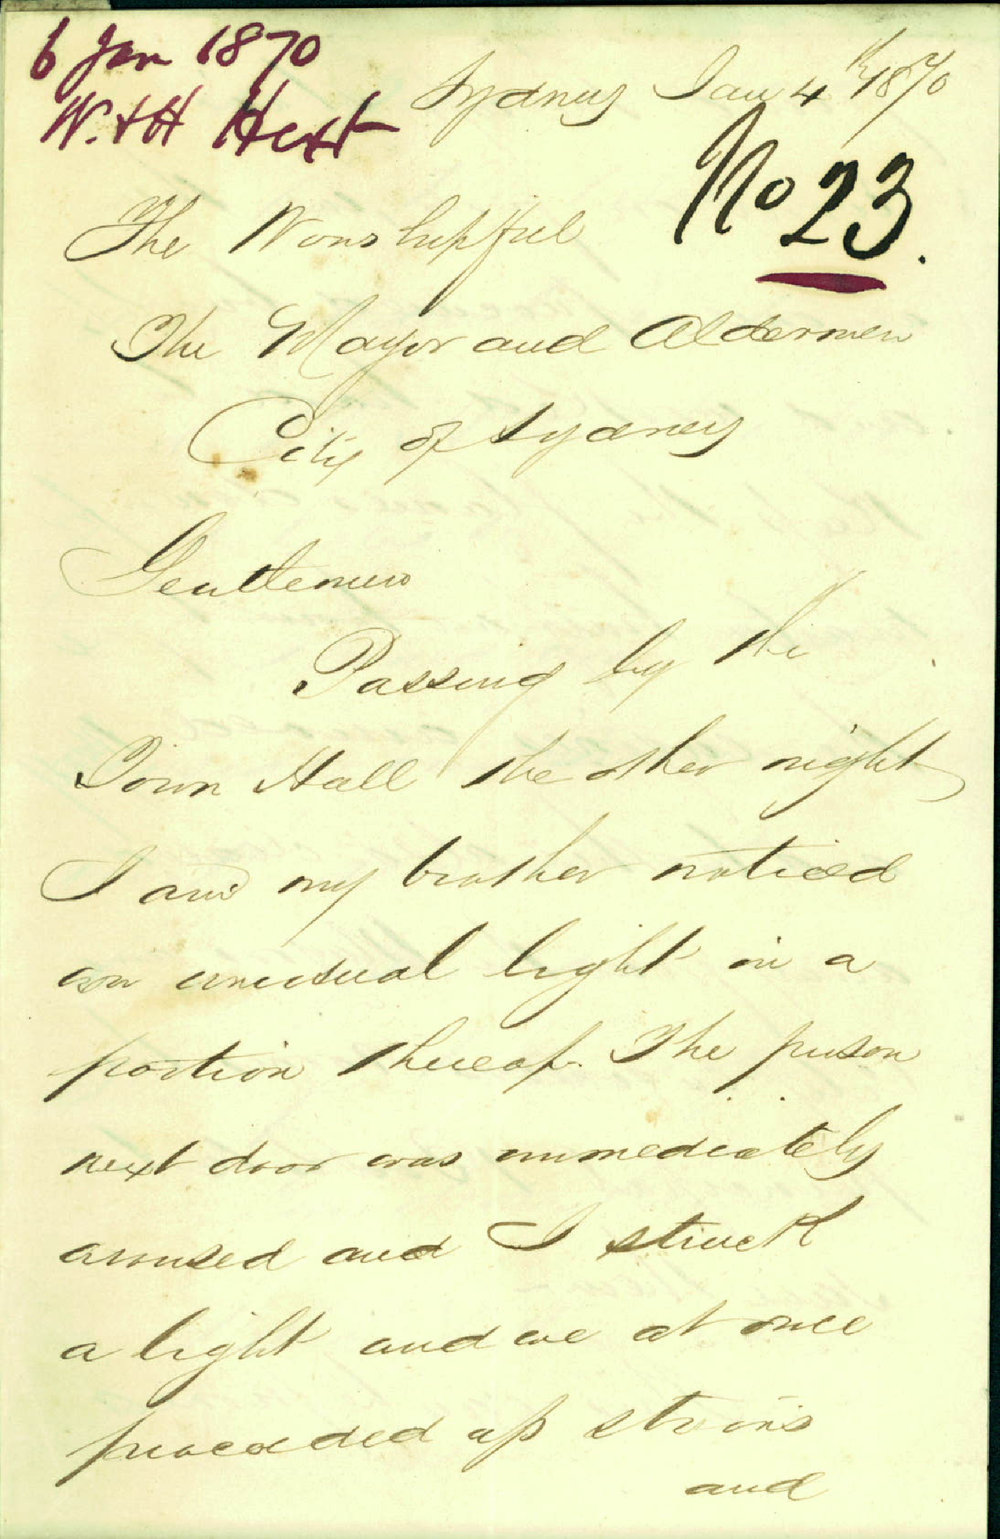 6 Jan 1870
W. & H Hext
Sydney Jan 4th 1870
No 23.
The Worshipfful
The Mayor and Aldermen
City of Sydney
Gentlemen
Passing by the
Town Hall the other night
I and my brother noticed
an unusual light in a
portion thereof. The person
next door was immediately
aroused and I struck
a light and we at once
proceeded up stairs
and